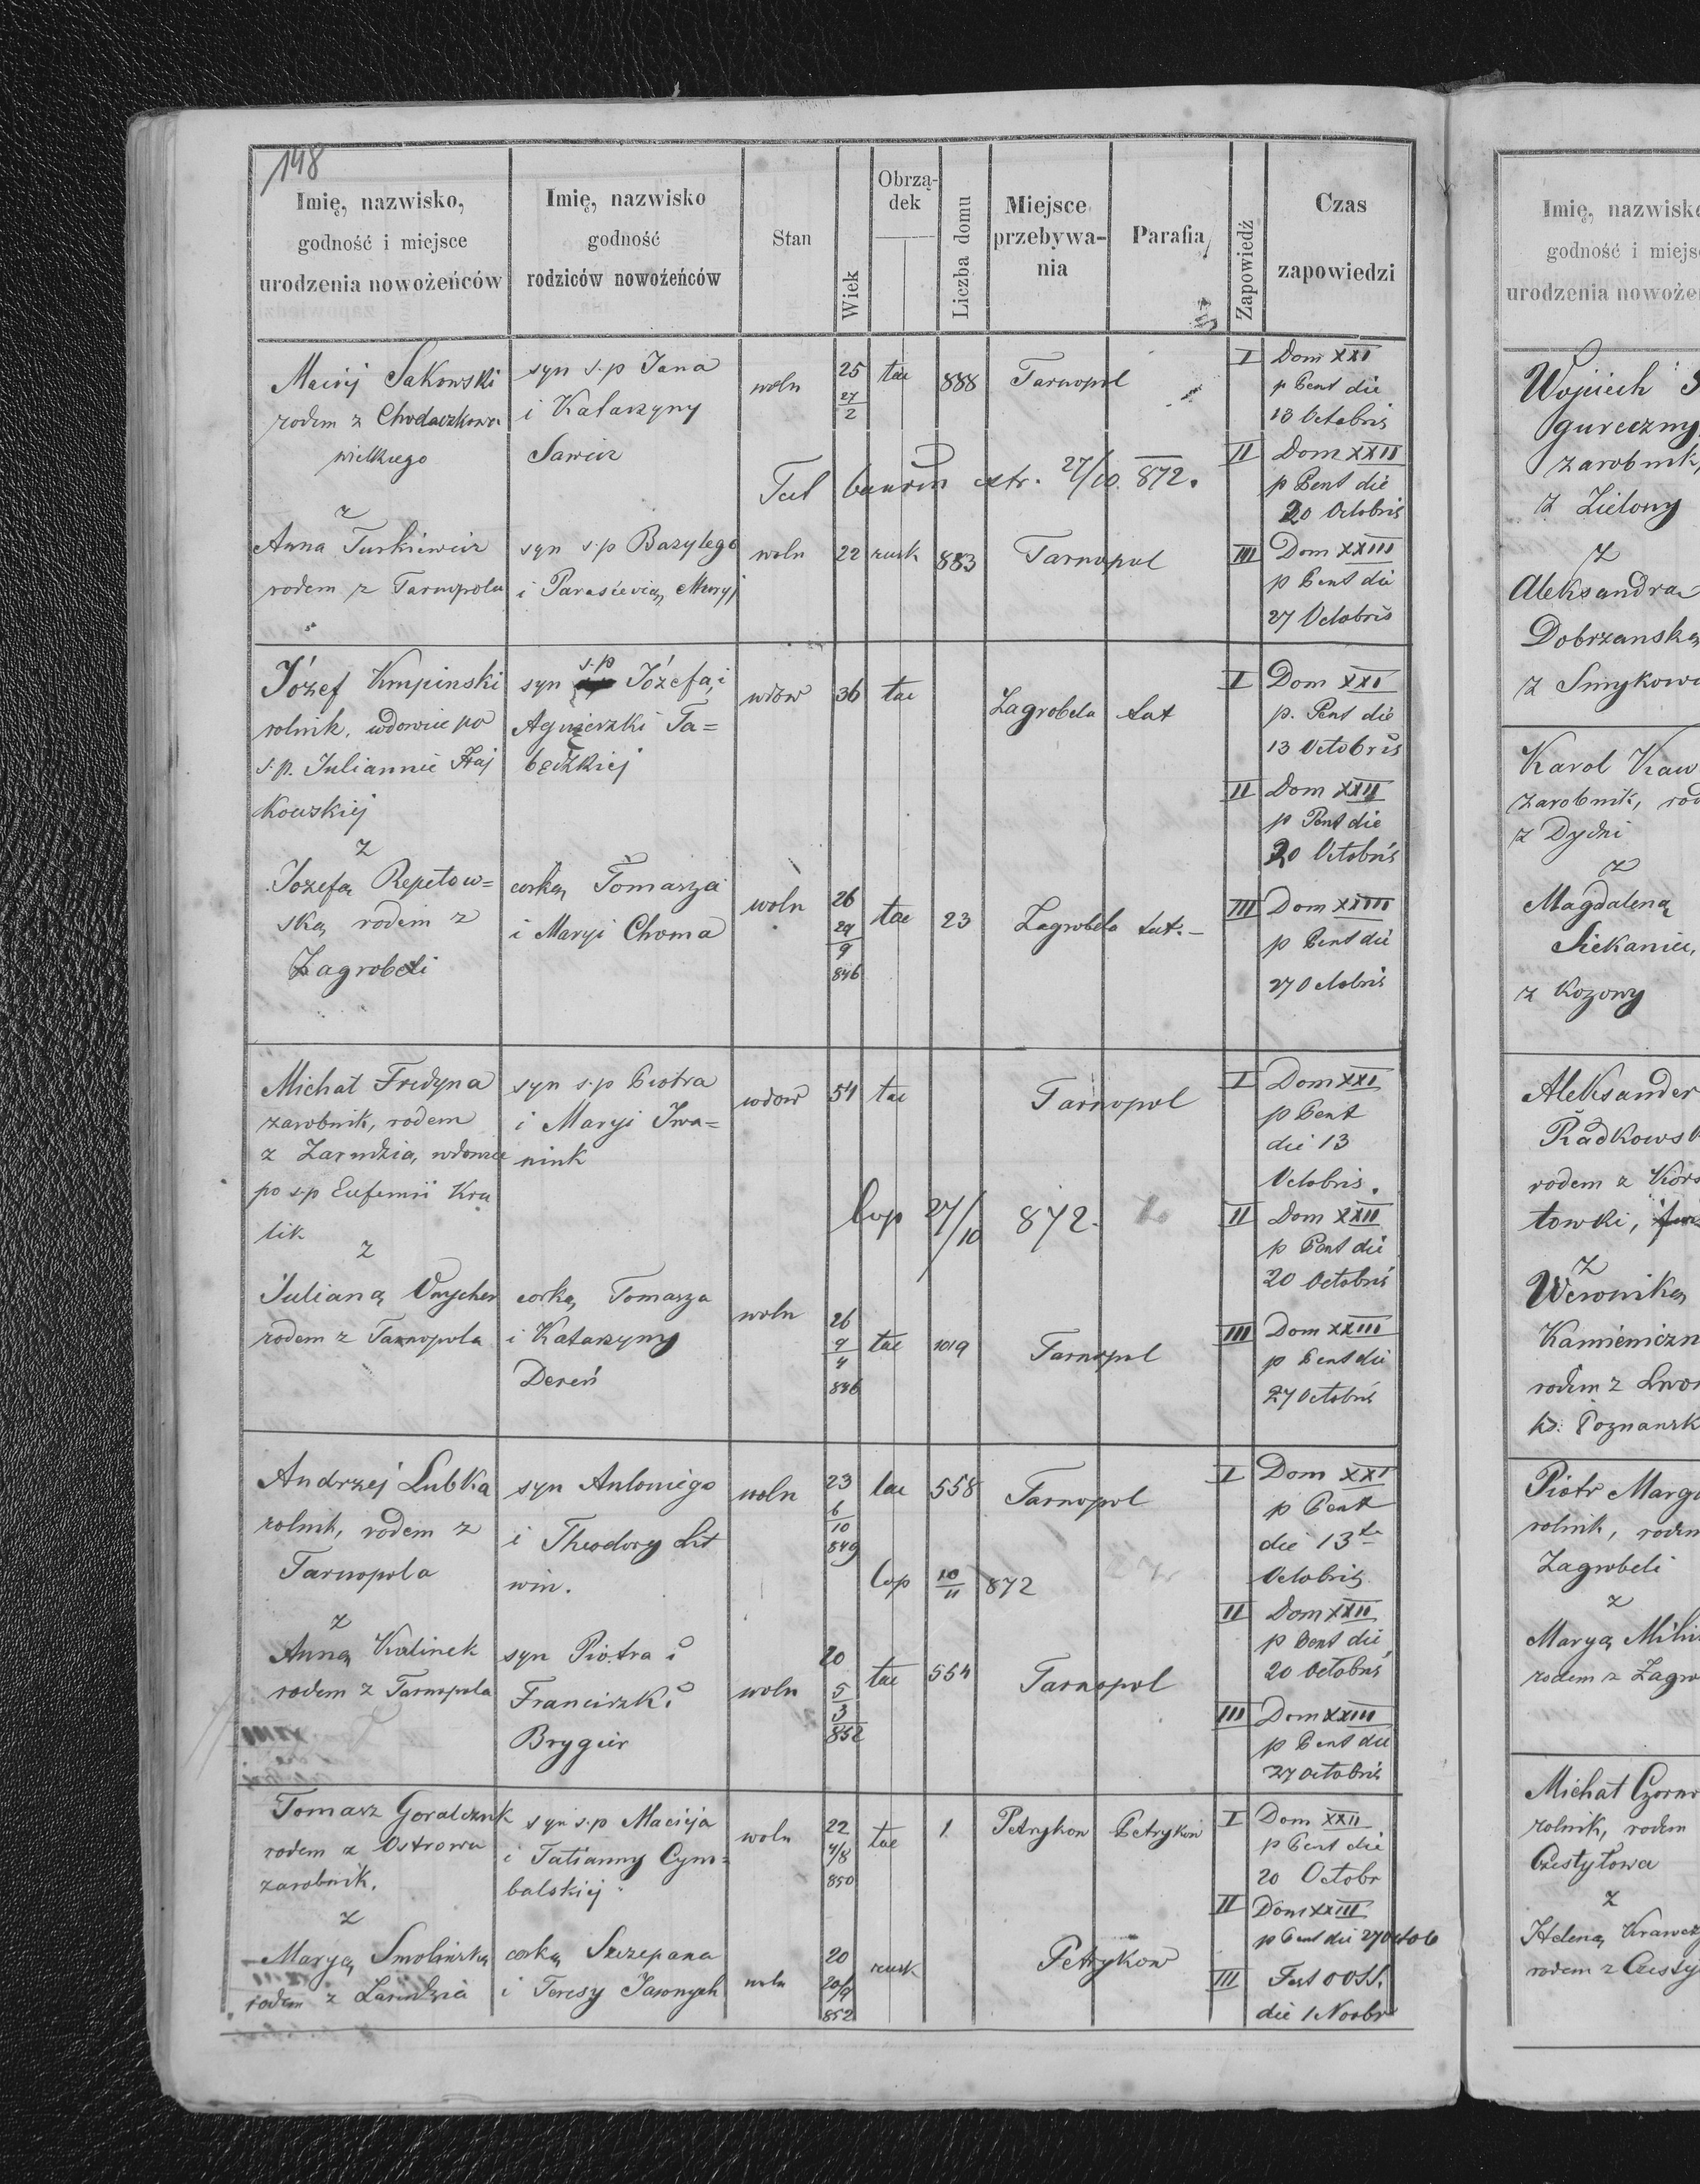 148
Imię, nazwisko,
godność i miejsce
urodzenia nowożeńców
Imię, nazwisko
godność
rodziców nowożeńców
Stan
Wiek
Obrzą-
dek
Liczba domu
Miejsce
przebywa-
nia
Parafia
Zapowiedź
Czas
zapowiedzi
Maciej Sakowski
rodem z Chodaczkowa
wielkiego
syn s.p Jana
i Katarzyny
Sawicz
woln
25
27
2
łac
888
Tarnopol
I Dom XXI
p Pent die
13 Octobris
II Dom XXII
p Pent die
20 Octobris
extr. 27/10. 872.
z
Anna Turkiewicz
rodem z Tarnopola
syn s.p Bazylego
i Maryj
woln
22
rusk
883
Tarnopol
III Dom XXIII
p Pent die
27 Octobris
Józef Kmpinski
rolnik, wdowiec po
s.p. Juliannie Fraj
kowskiej
syn s.p Józefa i
Agnieszki Ta=
będzkiej
wdow
36
łac
Zagrobela
Łat
I Dom XXI
p. Pent die
13 Octobris
II Dom XXII
p Pent die
20 Octobris
z
Jozefą Repetow=
ską rodem z
Zagrobeli
corką Tomasza
i Maryi Choma
woln
26
29
9
846
łac
23
Zagrobela
Łat.-
III Dom XXIII
p Pent die
27 Octobris
Michał Fredyna
zarobnik, rodem
z Zarudzia, wdowiec
po s.p Eufemii Kru
lik
syn s.p Piotra
i Maryi Iwa=
nink
wdow
54
łac
Tarnopol
I Dom XXI
p Pent
die 13
Octobris.
Cop 27/10 872.
II Dom XXII
p Pent die
20 Octobris
z
Julianą
rodem z Tarnopola
corką Tomasza
i Katarzyny
Dereń
woln
26
9
4
846
łac
1019
Tarnopol
III Dom XXIII
p Pent die
27 Octobris
Andrzej Lubka
rolnik, rodem z
Tarnopola
syn Antoniego
i Theodory Lit
win.
woln
23
6
10
849
łac
558
Tarnopol
I Dom XXI
p Pent
die 13
Octobris
Cop 10/11 872
II Dom XXII
p Pent die
20 Octobris
z
Anną Kalinek
rodem z Tarnopola
syn Piotra i
Franciszki
Brygier
woln
20
5
3
852
łac
554
Tarnopol
III Dom XXIII
p Pent die
27 Octobris
Tomasz Goralcznk
rodem z Ostrowa
zarobnik.
syn s.p Macieja
i Tatianny Cym=
balskiej
woln
22
4/8
850
łac
1
Petrykow
Petrykow
I Dom XXII
p Pent die
20 Octobr
II Dom XXIII
p Pent die 27 Octob
z
Maryą Smolinską
rodem z Zarudzia
corką Szczepana
i Teresy Jasonych
woln
20
20/9
852
rusk
Petrykow
III Fest OOSS.
die 1 Novbr
Imię, nazwisko
godność i miejs
urodzenia nowoże
Wojciech
Ogureczny
zarobnik,
z Zielony
z
Aleksandra
Dobrzanska
z Smykow
Karol Kaw
zarobnik, rod
z Dydni
z
Magdaleną
Siekaniec,
z Kozowy
Aleksander
Radkowsk
rodem z Kors
towki,
z
Weronika
Kamieniczn
rodem z Lwow
ks. Poznansk
Piotr Marg
rolnik, rodem
Zagrobeli
z
Maryą
rodem z Zagro
Michał Czorn
rolnik, rodem
Czestyłowa
z
Heleną Krawcz
rodem z Czesty